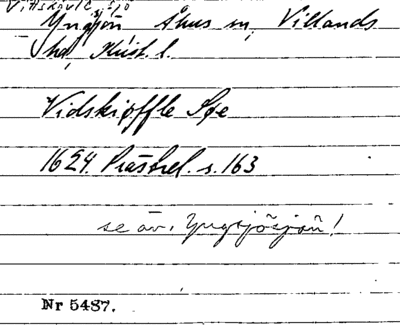 Yngsjön Åhus sn, Villands
hd, Krist. l.
Vidskiøffle Søe
1624. Prästrel. s. 163
se äv. Yngsjösjön!
Nr 5487.